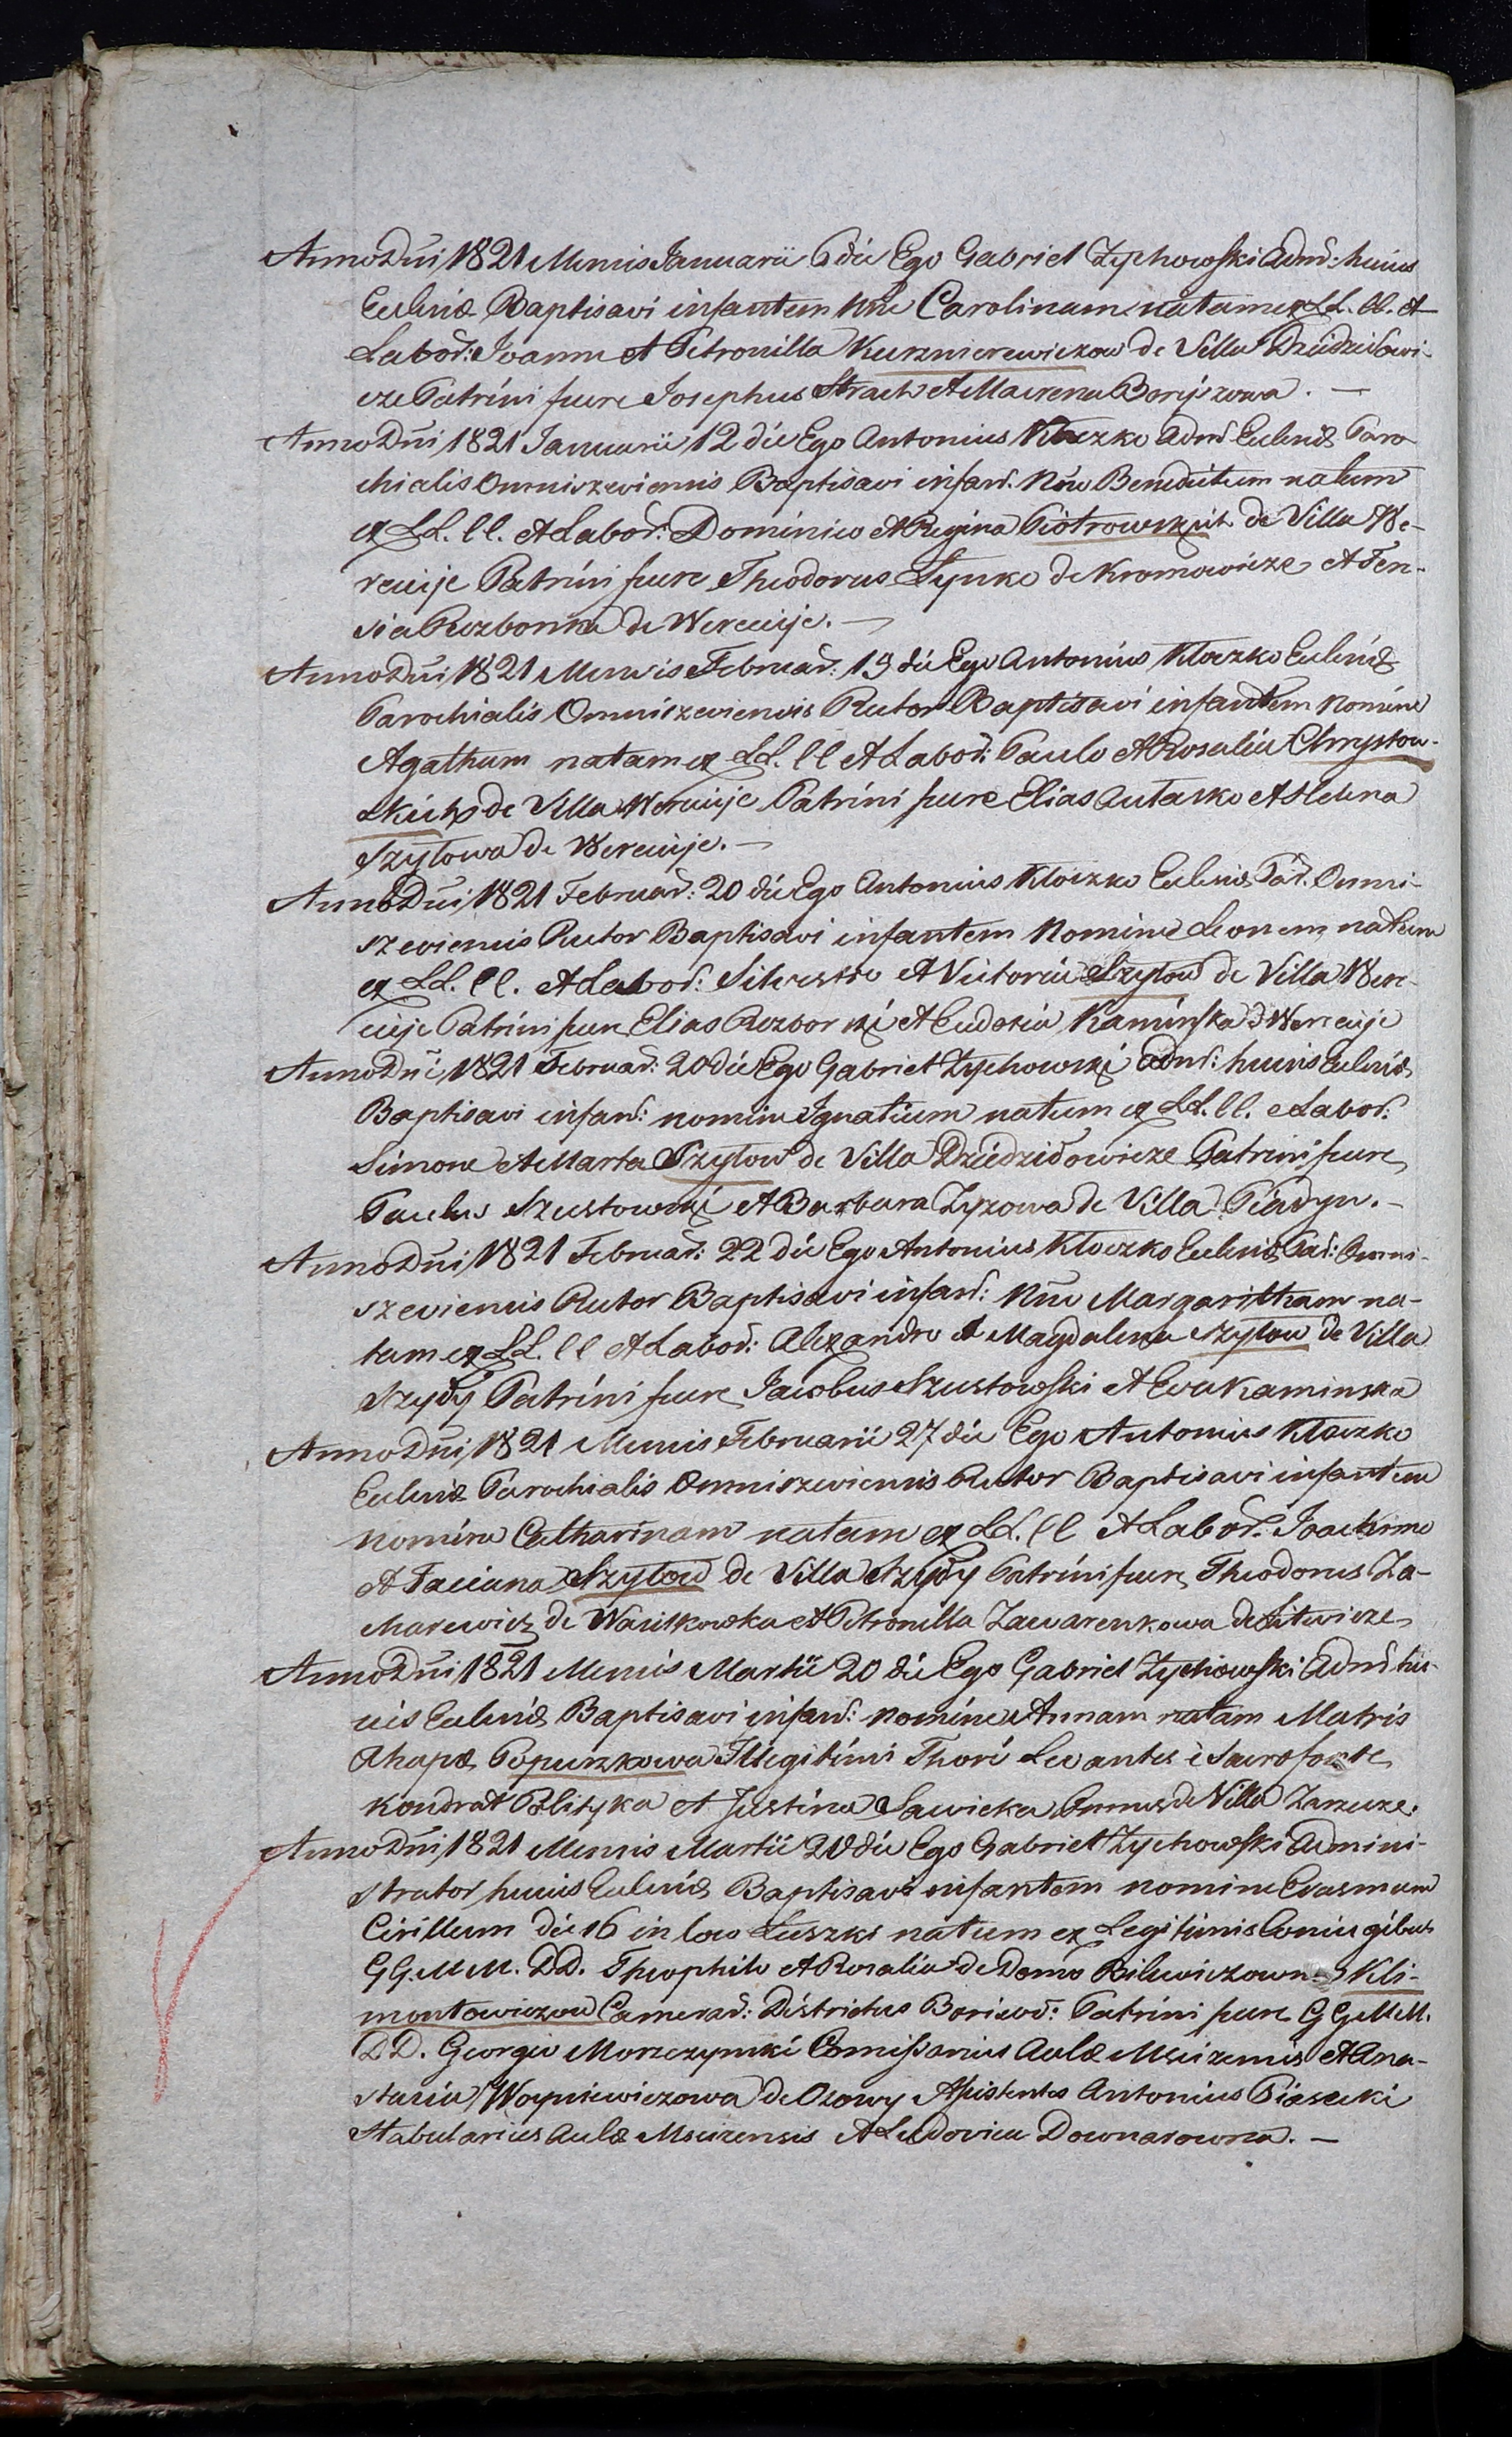 Anno Dni 1821 Mensis Januarii 6 die Ego Gabriel Zychowski Admr: huius
Ecclniæ Baptisavi infantem Nne Carolinam natam ex LL. ll. et
Labor: Joanne et Petronilla Kusznierewiczow de Villa Dziedziłowi-
cze Patrini fuere Josephus Strach et Maurena Boryszowa. —
Anno Dni 1821 Januarii 12 die Ego Antonius Kłoczko Admr Ecclniæ Paro
chialis Omniszeviensis Baptisavi infant. Nne Benedictum natum
ex LL. ll. et Labor: Dominico et Regina Piotrowskich de Villa We-
recieje Patrini fuere Theodorus Łynko de Kromowicze et Ten-
sia Rozborska de Werecieje. —
Anno Dni 1821 Mensis Februar: 19 die Ego Antonius Kłoczko Ecclniæ
Parochialis Omniszeviensis Rector Baptisavi infantem Nomine
Agatham natam ex LL. ll et Labor: Paulo et Rosalia Chrystow-
skich de Villa Werecieje Patrini fuere Elias Autasko et Helena
Szyłowa de Werecieje. —
Anno Dni 1821 Februar: 20 die Ego Antonius Kłoczko Ecclniæ Par: Omni-
szeviensis Rector Baptisavi infantem Nomine Leonem natum
ex LL. ll. et Labor: Silvestro et Victoria Szyłow de Villa Were-
cieje Patrini fuere Elias Rozborski et Eudoxia Kaminska d Werecieje
Anno Dni 1821 Februar: 20 die Ego Gabriel Zychowski Admr: huius Ecclniæ
Baptisavi infant: nomine Ignatium natum ex LL. ll. et Labor:
Simone et Marta Szyłow de Villa Dziedziłowicze Patrini fuere
Paulus Szustowski et Barbara Zyzowa de Villa Piadyn. —
Anno Dni 1821 Februar: 22 die Ego Antonius Kłoczko Ecclniæ Par: Omni-
szeviensis Rector Baptisavi infant: Nne Margaritham na-
tam ex LL. ll et Labor: Alexandro et Magdalena Szyłow de Villa
Szyły Patrini fuere Jacobus Szustowski et Eva Kaminska
Anno Dni 1821 Mensis Februarii 27 die Ego Antonius Kłoczko
Ecclniæ Parochialis Omniszeviensis Rector Baptisavi infantem
nomine Catharinam natam ex LL. ll et Labor: Joachimo
et Taciana Szyłow de Villa Szyły Patrini fuere Theodorus Za-
Marewicz de Wasilkowska et Petronella Zawarenkowa de Litwicze
Anno Dni 1821 Mensis Martii 20 die Ego Gabriel Zychowski Admr hu-
uis Ecclniæ Baptisavi infant: nomine Annam natam Matris
Ahapæ Popuszkowa Illegitimi Thori Levantes è Sacro fonte
Kondrat Polityka et Justina Sawicka Omnes de Villa Zarzcze.
Anno Dni 1821 Mensis Martii 20 die Ego Gabriel Zychowski Admini-
strator huius Ecclniæ Baptisavi infantem nomine Erasmum
Cirillum die 16 in loco Łuszki natum ex Legitimis Coniugibus
GG. MM. DD. Theophilo et Rosalia de Domo Bilewiczowna Kli-
montowiczow Camerar: Districtus Borisov: Patrini fuere GG MM.
DD. Georgio Morzczynski Comissarius Aulæ Mscizensis et Ana-
stasia Woyniewiczowa de Ozowy Assistentes Antonius Piasecki
Stabularius Aulæ Mscizensis et Ludovica Downarowna. —